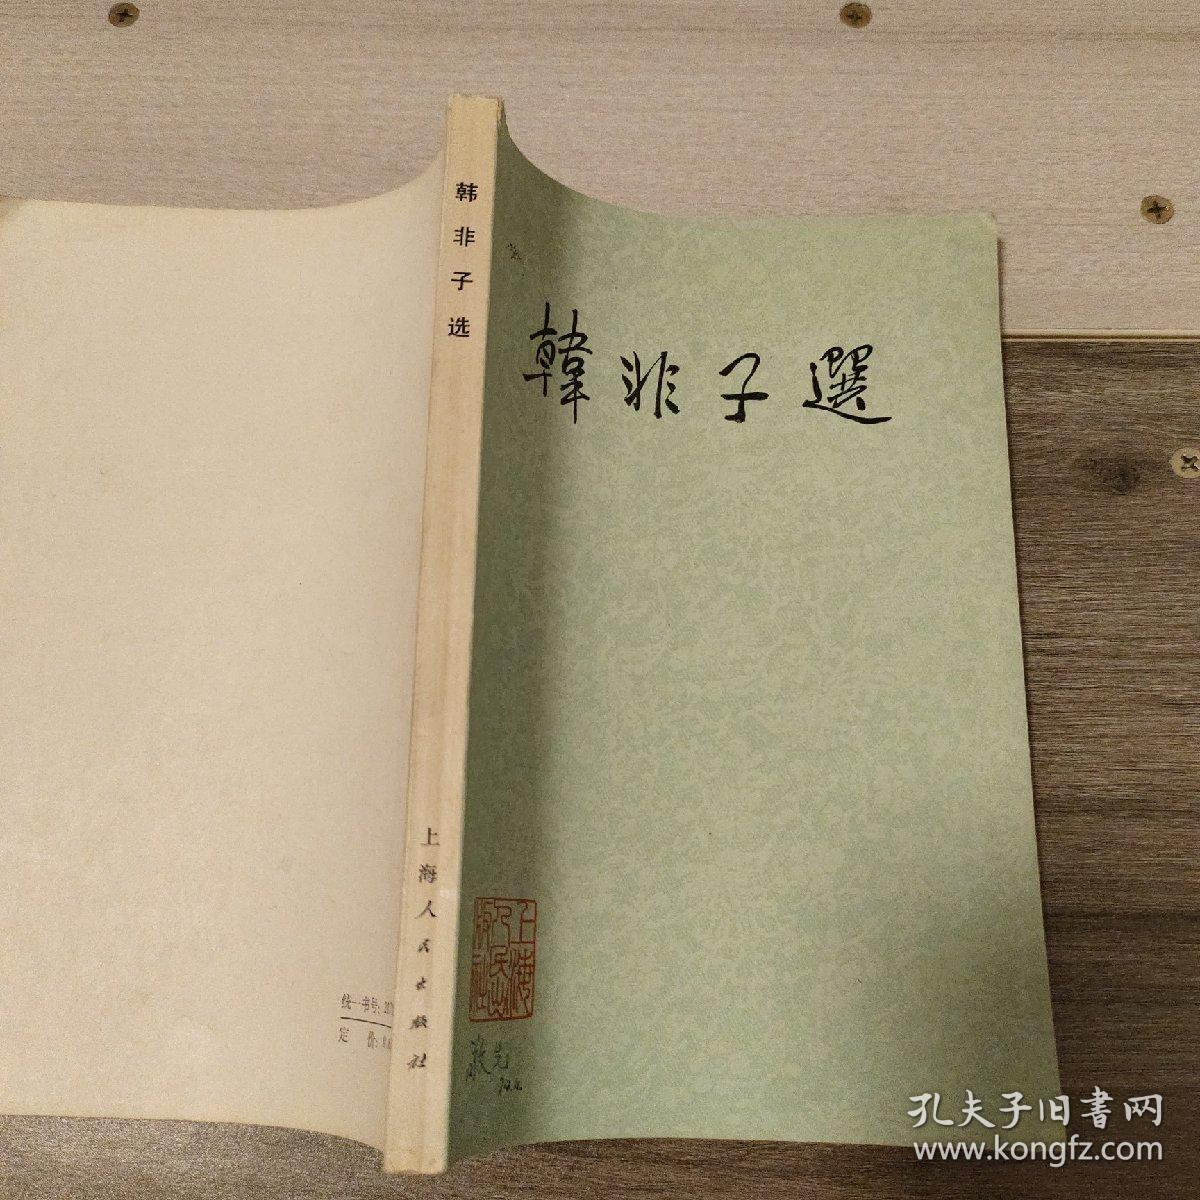 韩非子选
韓非子選
上海人民出版社
上海人民出版社
统一书号:
定 价:
孔夫子旧書网
www.kongfz.com